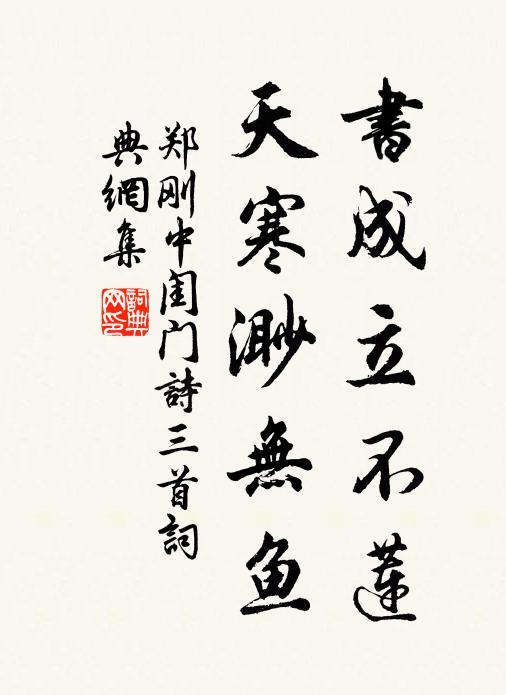 書成立不達
天寒渺無鱼
郑刚中闺门詩三首詞
典網集
詞典
网印